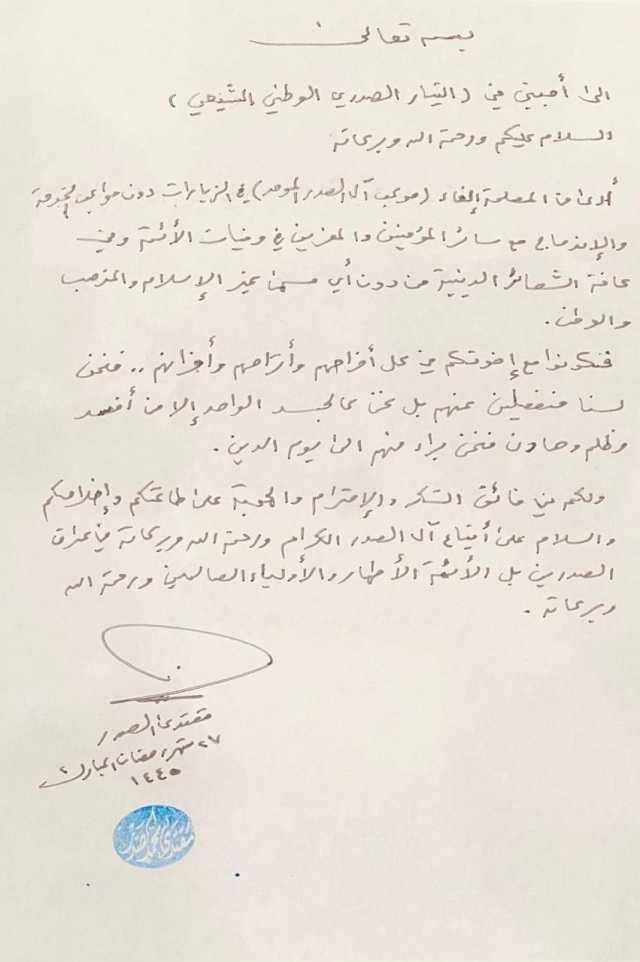 بسمه تعالى
الى أحبتي في (التيار الصدري الوطني الشيعي)
السلام عليكم ورحمة الله وبركاته
أرى من المصلحة إلغاء (موكب آل الصدر الموحد) في الزيارات دون مواكب الخدمة
والإندماج مع سائر المؤمنين والمعزين في وفيات الأئمة وفي
كافة الشعائر الدينية من دون أي مسمىً غير الإسلام والمذهب
والوطن.
فتكونوا مع إخوتكم في كل أفراحهم وأتراحهم وأحزانهم .. فنحن
لسنا منفصلين عنهم بل نحن كالجسد الواحد إلا من أفسد
وظلم وهادن فنحن براء منهم الى يوم الدين.
ولكم مني فائق الشكر والإحترام والمحبة على طاعتكم وإخلاصكم
والسلام على أتباع آل الصدر الكرام ورحمة الله وبركاته
الصدرين بل الأئمة الأطهار والأولياء الصالحين ورحمة الله
وبركاته.
مقتدى الصدر
٢٧ شهر رمضان المبارك
١٤٤٥
مقتدى الصدر